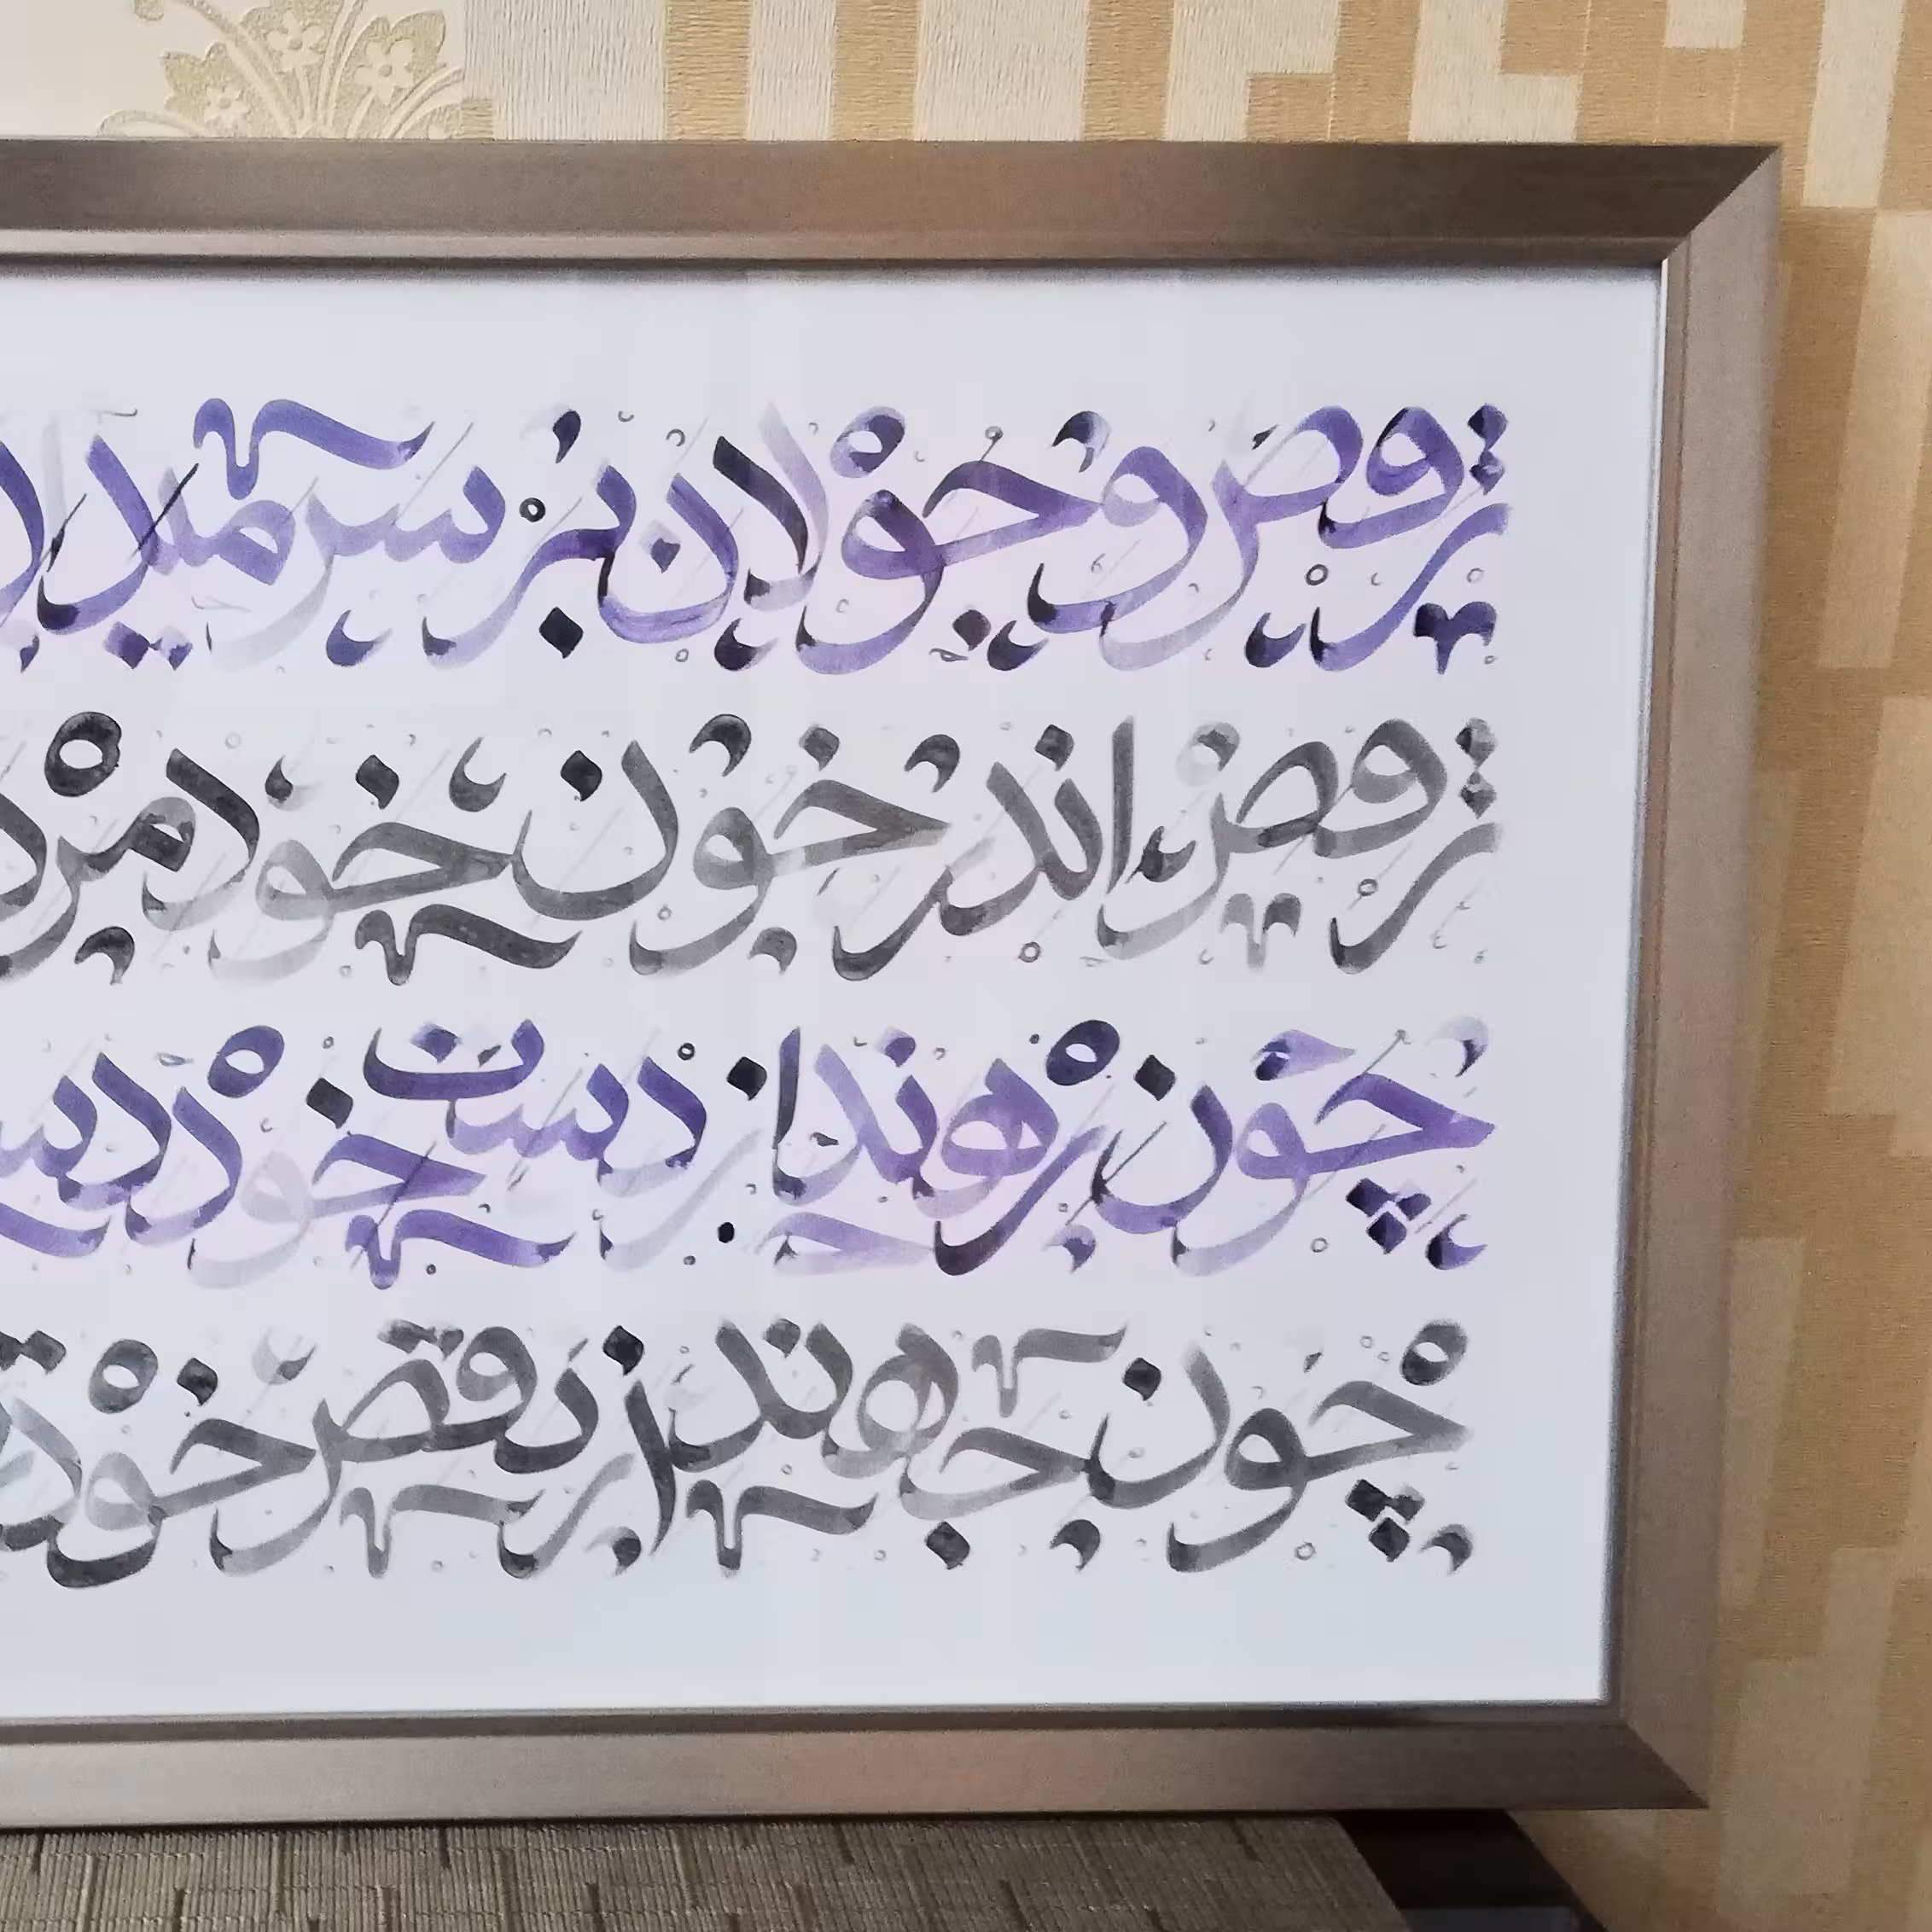 رقص و جولان بر سر میدا
رقص اندر خون خود مرد
چون رهند از دست خود دس
چون جهند از نقص خود